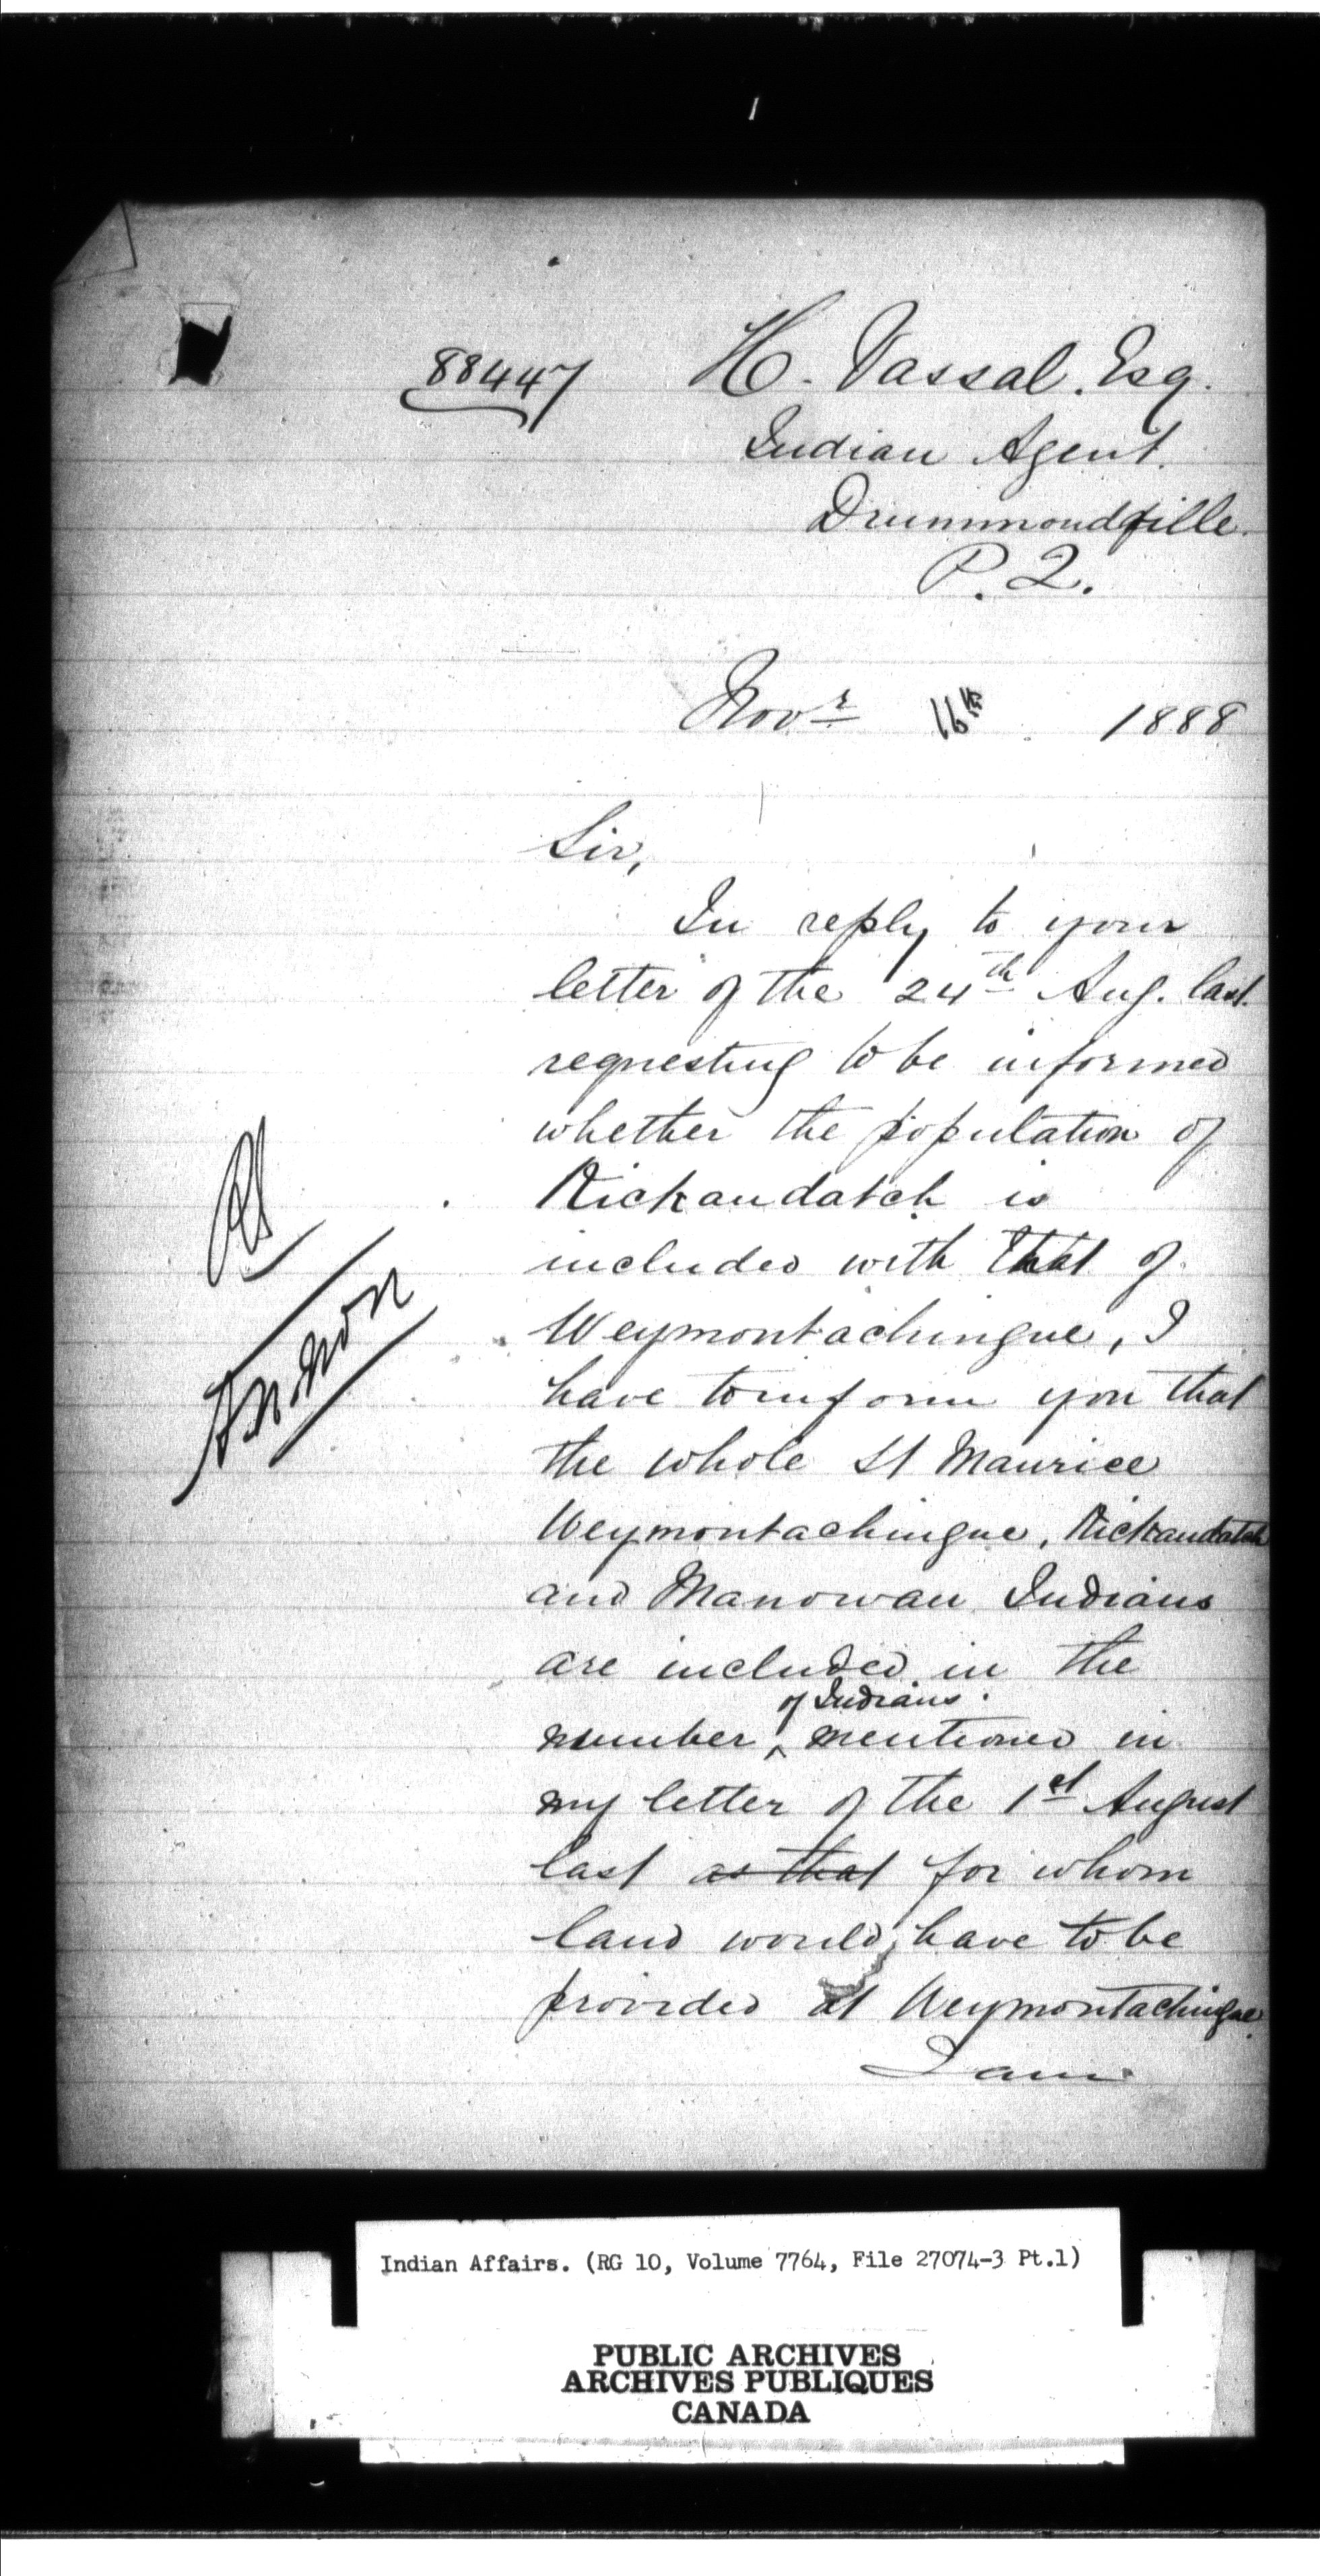 88447
H. Vassal. Esq.
Indian Agent.
Drummondville.
P.Q.
Novr 16th 1888
Sir,
In reply to your
letter of the 24th Aug. last.
requesting to be informed
whether the population of
Kickandatch is
included with that of
Weymontachingue, I
have to inform you that
the whole St Maurice
Weymontachingue, Kickandatch
and Manowan Indians
are included in the
of Indians.
number ^ mentioned in
my letter of the 1st August
last as that for whom
land would have to be
provided at Weymontachingue.
I am
Indian Affairs. (RG 10, Volume 7764, File 27074-3 Pt.1)
PUBLIC ARCHIVES
ARCHIVES PUBLIQUES
CANADA